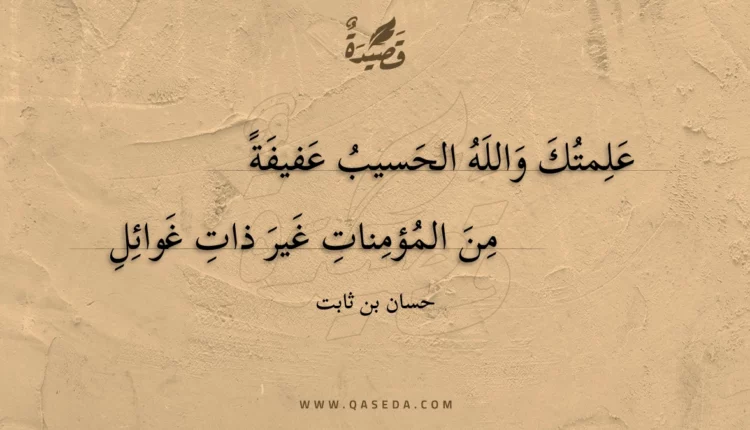 قَصِيْدَةٌ
عَلِمتُكَ وَاللَهُ الحَسيبُ عَفيفَةً
مِنَ المُؤمِناتِ غَيرَ ذاتِ غَوائِلِ
حسان بن ثابت
WWW.QASEDA.COM